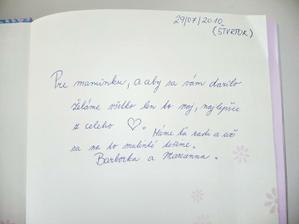 29/07/2010
(ŠTVRTOK)
Pre maminku, a aby sa vám darilo
želáme všetko len to naj, najlepšie
z celého ♡. Máme ťa rade a už
sa na to malinké tešíme.
Barborka a Marianna.